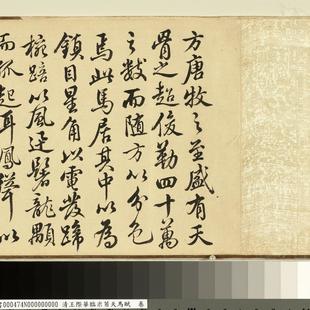 方唐牧之至盛有天
骨之超俊勒四十萬
之數而随方以分色
焉此馬居其中以為
鎮目星角以電發蹄
椀踣以風迅鬐龍顒
而孤起耳鳳聳以
000474N000000000 清王際華臨米芾天馬賦 卷